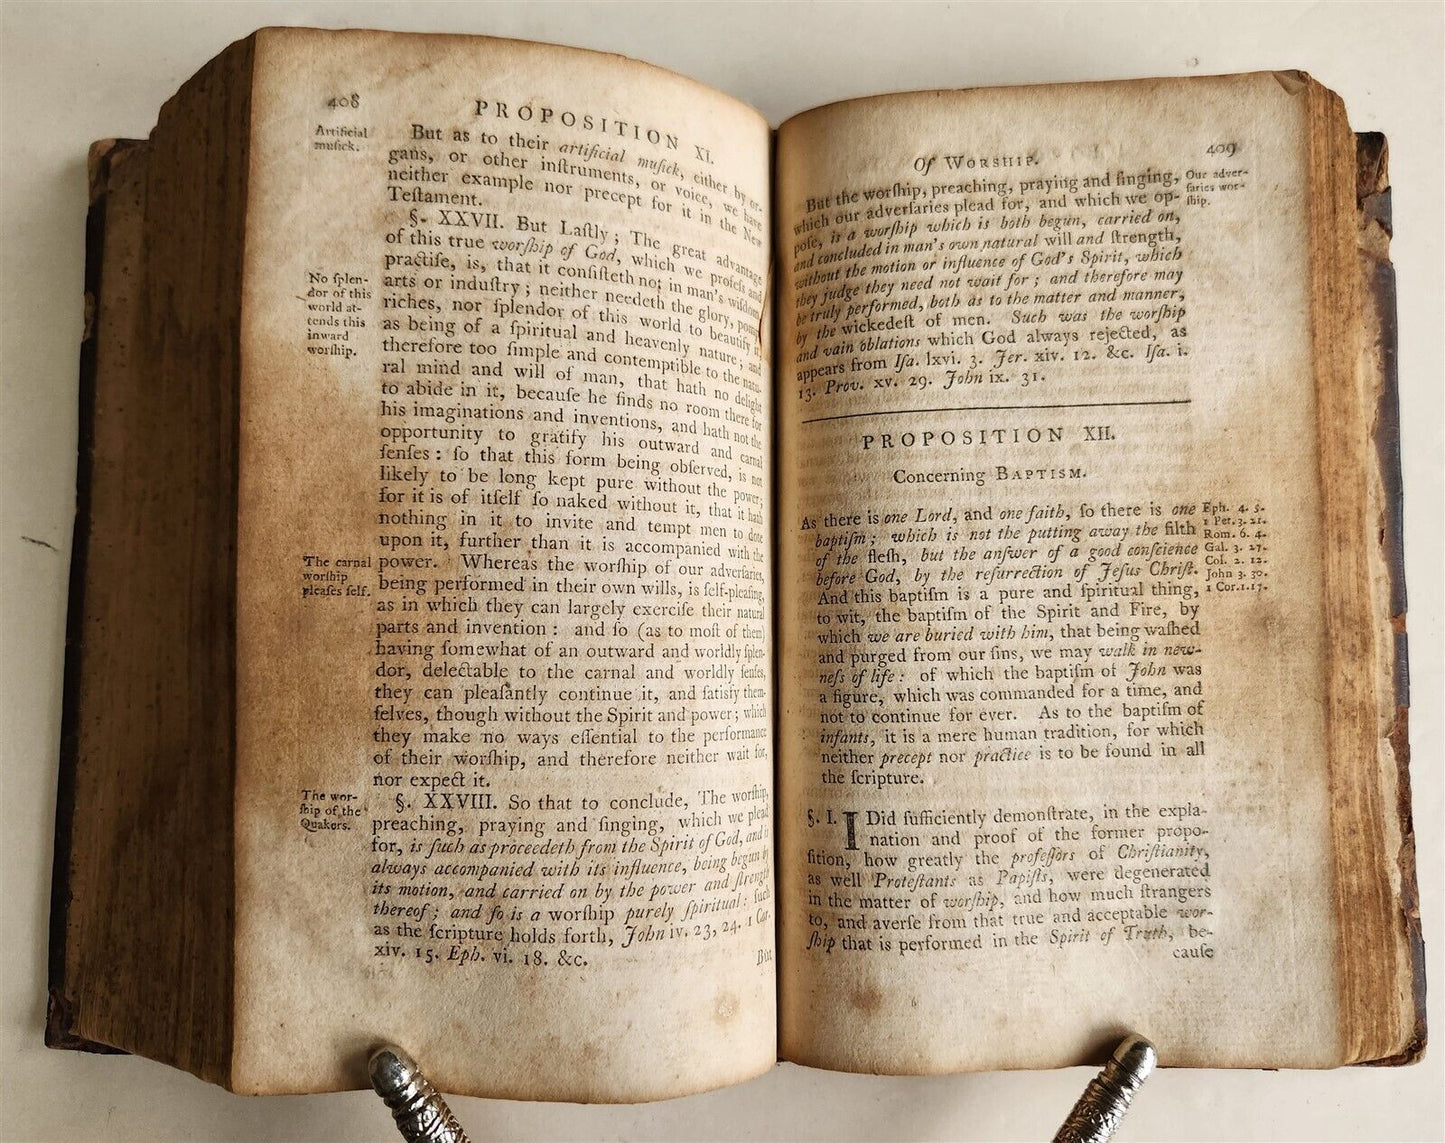 408
PROPOSITION XI.
Artificial
muſick.
But as to their artificial muſick, either by or-
gans, or other inſtruments, or voice, we have
neither example nor precept for it in the New
Teſtament.
§. XXVII. But Laſtly; The great advantage
of this true worſhip of God, which we profeſs and
practiſe, is, that it conſiſteth not in man's wiſdom,
No ſplen-
dor of this
world at-
tends this
inward
worſhip.
arts or induſtry; neither needeth the glory, pomp,
riches, nor ſplendor of this world to beautify it,
as being of a ſpiritual and heavenly nature; and
therefore too ſimple and contemptible to the natu-
ral mind and will of man, that hath no delight
to abide in it, becauſe he finds no room there for
his imaginations and inventions, and hath not the
opportunity to gratify his outward and carnal
ſenſes: ſo that this form being obſerved, is not
likely to be long kept pure without the power;
for it is of itſelf ſo naked without it, that it hath
nothing in it to invite and tempt men to dote
upon it, further than it is accompanied with the
The carnal
worſhip
pleaſes ſelf.
power. Whereas the worſhip of our adverſaries,
being performed in their own wills, is ſelf-pleaſing,
as in which they can largely exerciſe their natural
parts and invention: and ſo (as to moſt of them)
having ſomewhat of an outward and worldly ſplen-
dor, delectable to the carnal and worldly ſenſes,
they can pleaſantly continue it, and ſatisfy them-
ſelves, though without the Spirit and power; which
they make no ways eſſential to the performance
of their worſhip, and therefore neither wait for,
nor expect it.
The wor-
ſhip of the
Quakers.
§. XXVIII. So that to conclude, The worſhip,
preaching, praying and ſinging, which we plead
for, is ſuch as proceedeth from the Spirit of God, and is
always accompanied with its influence, being begun by
its motion, and carried on by the power and ſtrength
thereof; and ſo is a worſhip purely ſpiritual: ſuch
as the ſcripture holds forth, John iv. 23, 24. 1 Cor.
xiv. 15. Eph. vi. 18. &c.
But
Of WORSHIP.
409
But the worſhip, preaching, praying and ſinging,
which our adverſaries plead for, and which we op-
Our adver-
ſaries wor-
ſhip.
poſe, is a worſhip which is both begun, carried on,
and concluded in man's own natural will and ſtrength,
without the motion or influence of God's Spirit, which
they judge they need not wait for; and therefore may
be truly performed, both as to the matter and manner,
by the wickedeſt of men. Such was the worſhip
and vain oblations which God always rejected, as
appears from Iſa. lxvi. 3. Jer. xiv. 12. &c. Iſa. i.
13. Prov. xv. 29. John ix. 31.
PROPOSITION XII.
Concerning BAPTISM.
As there is one Lord, and one faith, ſo there is one
baptiſm; which is not the putting away the filth
of the fleſh, but the anſwer of a good conſcience
before God, by the reſurrection of Jeſus Chriſt.
Eph. 4. 5.
1 Pet. 3. 21.
Rom. 6. 4.
Gal. 3. 27.
Col. 2. 12.
John 3. 30.
1 Cor. 1. 17.
And this baptiſm is a pure and ſpiritual thing,
to wit, the baptiſm of the Spirit and Fire, by
which we are buried with him, that being waſhed
and purged from our ſins, we may walk in new-
neſs of life: of which the baptiſm of John was
a figure, which was commanded for a time, and
not to continue for ever. As to the baptiſm of
infants, it is a mere human tradition, for which
neither precept nor practice is to be found in all
the ſcripture.
§. I. I Did ſufficiently demonſtrate, in the expla-
nation and proof of the former propo-
ſition, how greatly the profeſſors of Chriſtianity,
as well Proteſtants as Papiſts, were degenerated
in the matter of worſhip, and how much ſtrangers
to, and averſe from that true and acceptable wor-
ſhip that is performed in the Spirit of Truth, be-
cauſe